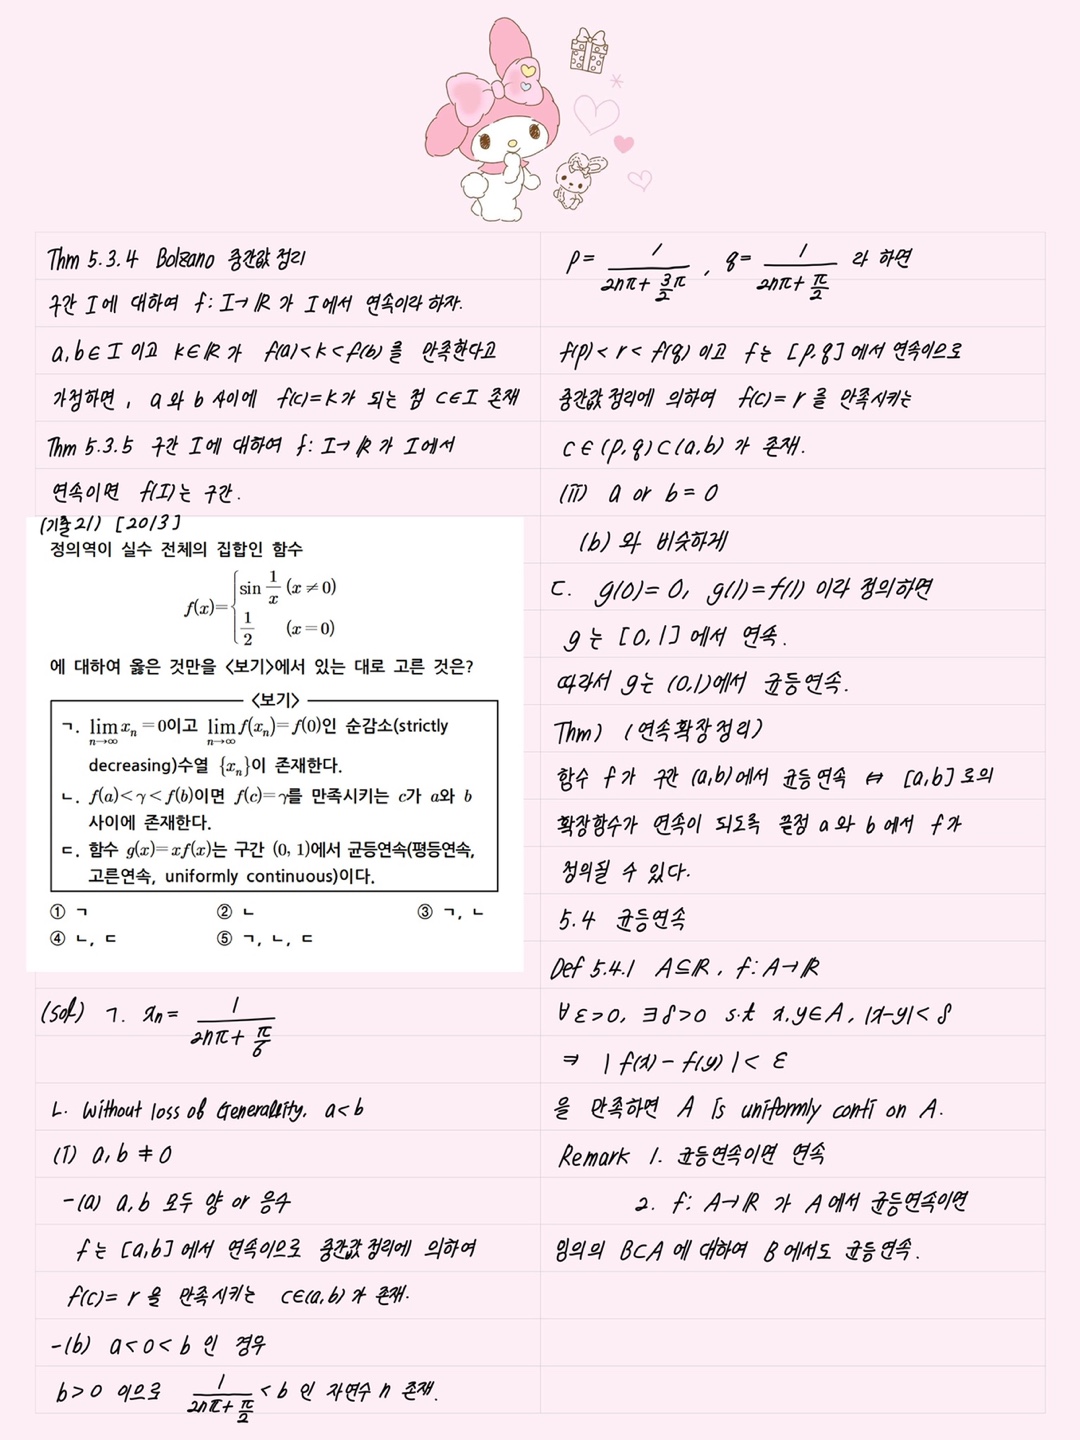 Thm 5.3.4 Bolzano 중간값 정리
구간 I에 대하여 f: I→ℝ 가 I에서 연속이라 하자.
a,b∈I 이고 k∈ℝ가 f(a)<k<f(b)를 만족한다고
가정하면, a와 b 사이에 f(c)=k가 되는 점 c∈I 존재
Thm 5.3.5 구간 I에 대하여 f: I→ℝ가 I에서
연속이면 f(I)는 구간.
(기출21) [2013]
정의역이 실수 전체의 집합인 함수
f(x)={ sin 1/x (x≠0)
1/2 (x=0)
에 대하여 옳은 것만을 <보기>에서 있는 대로 고른 것은?
<보기>
ㄱ. lim_{n→∞} x_n = 0이고 lim_{n→∞} f(x_n)=f(0)인 순감소(strictly
decreasing)수열 {x_n}이 존재한다.
ㄴ. f(a)<γ<f(b)이면 f(c)=γ를 만족시키는 c가 a와 b
사이에 존재한다.
ㄷ. 함수 g(x)=xf(x)는 구간 (0, 1)에서 균등연속(평등연속,
고른연속, uniformly continuous)이다.
① ㄱ ② ㄴ ③ ㄱ, ㄴ
④ ㄴ, ㄷ ⑤ ㄱ, ㄴ, ㄷ
(sol) ㄱ. x_n = 1/(2nπ + π/6)
ㄴ. Without loss of Generality, a<b
(i) a,b ≠ 0
-(a) a,b 모두 양 or 음수
f는 [a,b]에서 연속이므로 중간값 정리에 의하여
f(c)=r 을 만족시키는 c∈(a,b)가 존재.
-(b) a<0<b 인 경우
b>0 이므로 1/(2nπ + π/2) < b 인 자연수 n 존재.
p= 1/(2nπ + 3/2π) , q= 1/(2nπ + π/2) 라 하면
f(p)<r<f(q) 이고 f는 [p,q]에서 연속이므로
중간값 정리에 의하여 f(c)=r 를 만족시키는
c∈(p,q)⊂(a,b)가 존재.
(ii) a or b=0
(b)와 비슷하게
ㄷ. g(0)=0, g(1)=f(1) 이라 정의하면
g는 [0,1]에서 연속.
따라서 g는 (0,1)에서 균등연속.
Thm) (연속확장정리)
함수 f가 구간 (a,b)에서 균등연속 ⇔ [a,b]로의
확장함수가 연속이 되도록 끝점 a와 b에서 f가
정의될 수 있다.
5.4 균등연속
Def 5.4.1 A⊆ℝ, f: A→ℝ
∀ε>0, ∃δ>0 s.t x,y∈A, |x-y|<δ
⇒ |f(x)-f(y)|<ε
을 만족하면 A is uniformly conti on A.
Remark 1. 균등연속이면 연속
2. f: A→ℝ 가 A에서 균등연속이면
임의의 B⊂A에 대하여 B에서도 균등연속.